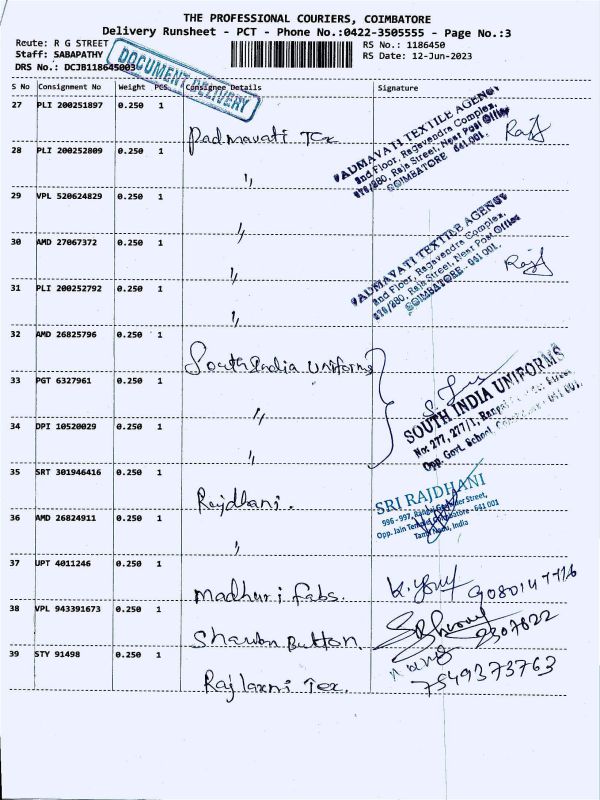 THE PROFESSIONAL COURIERS, COIMBATORE
Delivery Runsheet - PCT - Phone No.:0422-3505555 - Page No.:3
Route: R G STREET
RS No.: 1186450
Staff: SABAPATHY
RS Date: 12-Jun-2023
DRS No.: DCJB118645003
DOCUMENT DELIVERY
S No Consignment No Weight PCS Consignee Details Signature
27 PLI 200251897 0.250 1 Padmavati Tex
PADMAVATI TEXTILE AGENCY
2nd Floor, Ragavendra Complex,
676/280, Raja Street, Near Post Office
COIMBATORE 641 001.
28 PLI 200252809 0.250 1 "
29 VPL 520624829 0.250 1 "
30 AMD 27067372 0.250 1 "
PADMAVATI TEXTILE AGENCY
2nd Floor, Ragavendra Complex,
676/280, Raja Street, Near Post Office
COIMBATORE - 641 001.
31 PLI 200252792 0.250 1 "
32 AMD 26825796 0.250 1 South India Uniforms
33 PGT 6327961 0.250 1 "
SOUTH INDIA UNIFORMS
No: 277, 277/1, Rangai
Opp. Govt. School, 641 001.
34 DPI 10520029 0.250 1 "
35 SRT 301946416 0.250 1 Rajdhani.
SRI RAJDHANI
996 - 997, Street,
Opp. Jain Temple, Coimbatore - 641 001
Tamil Nadu, India
36 AMD 26824911 0.250 1 "
37 UPT 4011246 0.250 1 Madhuri fabs.
38 VPL 943391673 0.250 1 Shawbn Button.
39 STY 91498 0.250 1 Rajlaxmi Tex.
7549373763